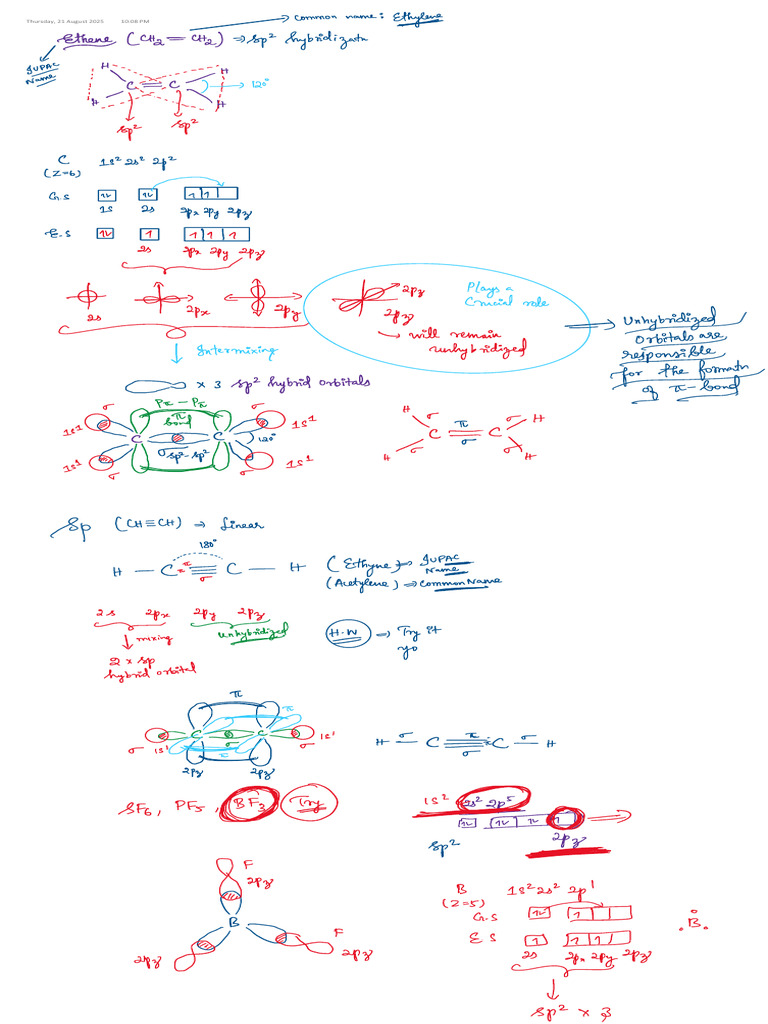 Thursday, 21 August 2025 10:08 PM
→ Common name: Ethylene
Ethene (CH₂=CH₂) ⇒ sp² hybridizatn
IUPAC
Name
H H
C = C → 120°
H H
sp² sp²
C 1s² 2s² 2p²
(Z=6)
G.S 1↓ 1↓ 1 1
1s 2s 2px 2py 2pz
E.S 1↓ 1 1 1 1
2s 2px 2py 2pz
2s 2px 2py
2pz
2pz
Plays a
Crucial role
→ will remain
unhybridized
⇒ Unhybridized
orbitals are
responsible
for the formatn
of π-bond
Intermixing
× 3 sp² hybrid orbitals
Pπ - Pπ
π
bond
σ σ
1s¹ 1s¹
C C 120°
σ sp²-sp²
1s¹ 1s¹
σ σ
H σ σ H
C π C
σ
H σ H
Sp (CH≡CH) → Linear
180°
H — C π π ≡ C — H
σ
(Ethyne) → IUPAC
Name
(Acetylene) ⇒ Common Name
2s 2px 2py 2pz
mixing unhybridized
2 × sp
hybrid orbital
H.W ⇒ Try it
yo
π
π
C C
σ 1s¹ σ 1s¹ σ
π
2pz 2pz
H σ C π ≡ C σ H
σ
SF₆, PF₅, BF₃ Try
1s² 2s² 2p⁵
1↓ 1↓ 1↓ 1
sp² 2pz
F
2pz
B
F
2pz 2pz
B 1s² 2s² 2p¹
(Z=5)
G.S 1↓ 1
E S 1 1 1
2s 2px 2py 2pz
B
sp² × 3